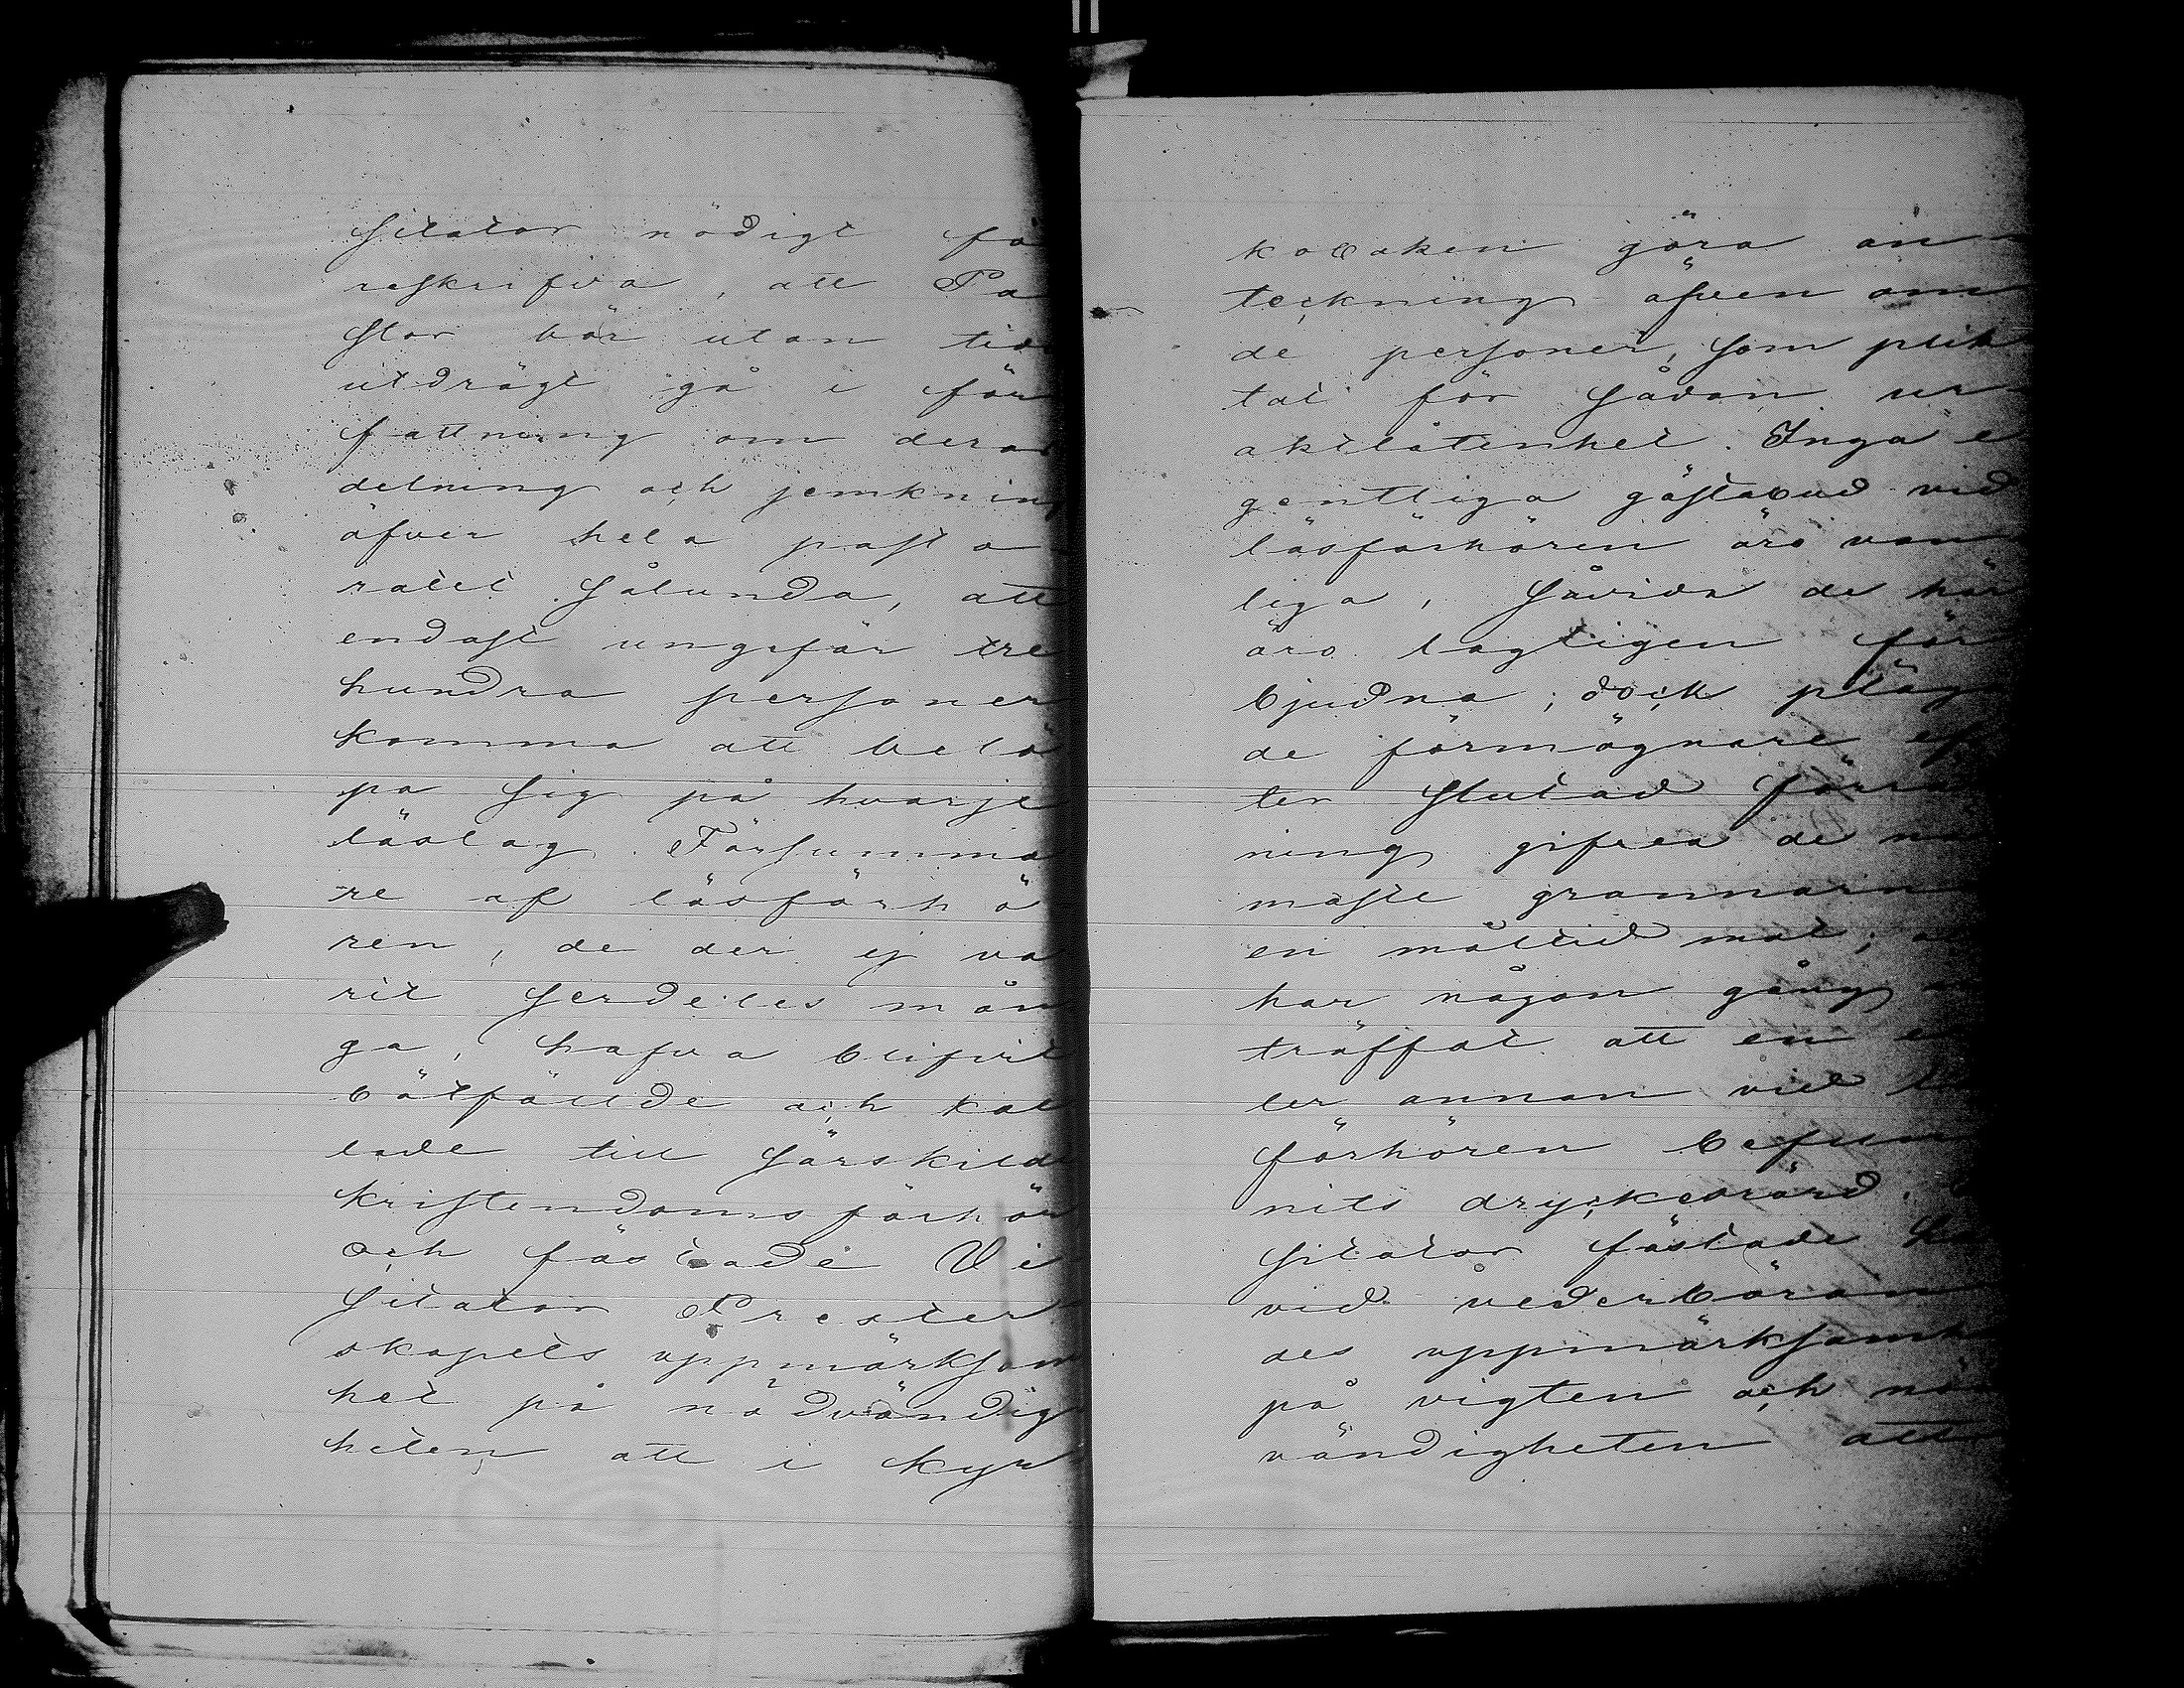 sitator nödigt fö
reskrifva, att Pa
stor bör utan tids
utdrägt gå i för
fattning om deras
delning och jemkning
öfver hela pasto-
ratet sålunda, att
endast ungefär tre
hundra personer
komma att belö
pa sig på hvarje
läslag. Försumma
re af läsförhö
ren, de der ej va
rit serdeles mån
ga, hafva blifvit
bötfällde och kal
lade till särskilda
kristendomsförhör
och fästade Vi
sitator Prester
skapets uppmärksam
het på nödvändig
heten att i kyr
koboken göra an-
teckning äfven om
de personer, som plik
tat för sådan ur-
aktlåtenhet. Inga e
gentliga gästabud vid
läsförhören äro van
liga, såvida de här
äro lagligen för
bjudna; dock pläga
de förmögnare ef
ter slutad förrätt
ning gifva de när
maste grannarne
en måltid mat;
har någon gång
träffat att en el
ler annan vid läs
förhören befun
nits dryckesrörd. Vi
sitator fästade
vid vederböran
des uppmärksamhet
på vigten och nöd
vändigheten att